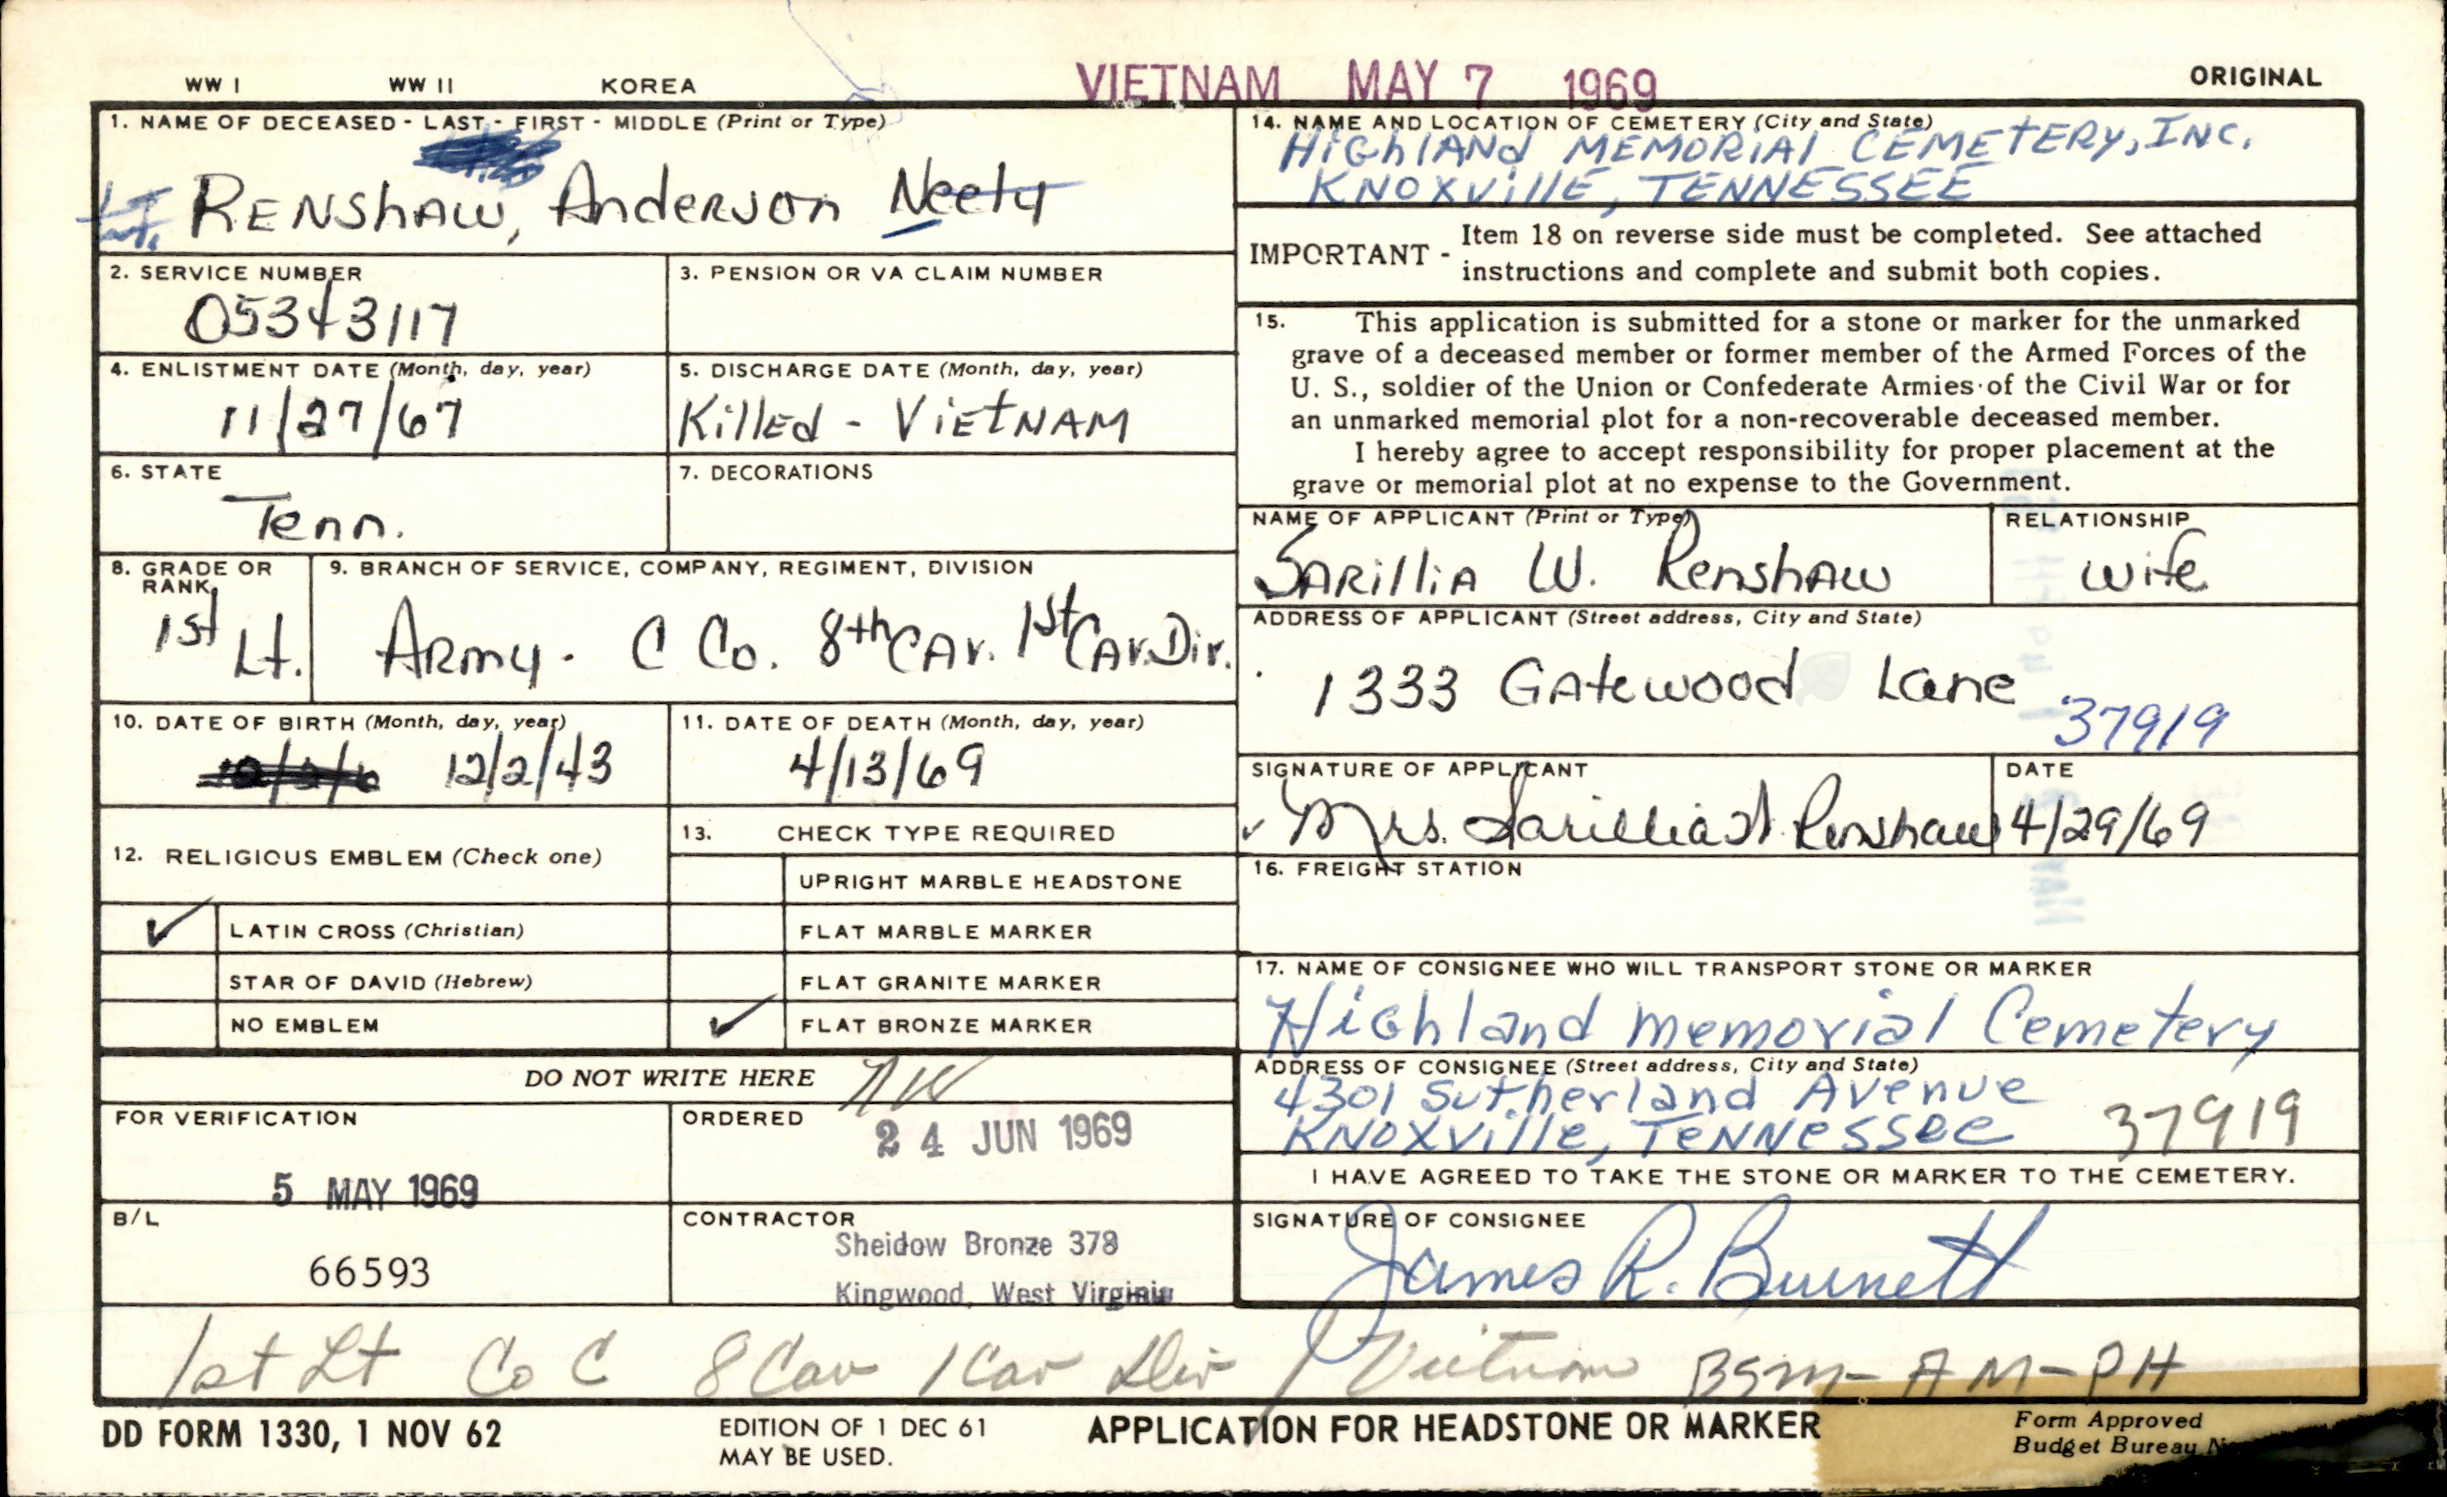 WW I WW II KOREA VIETNAM MAY 7 1969 ORIGINAL
1. NAME OF DECEASED - LAST - FIRST - MIDDLE (Print or Type)
Lt. RENSHAW, Anderson Neely
2. SERVICE NUMBER
05343117
3. PENSION OR VA CLAIM NUMBER
4. ENLISTMENT DATE (Month, day, year)
11/27/67
5. DISCHARGE DATE (Month, day, year)
Killed - Vietnam
6. STATE
Tenn.
7. DECORATIONS
8. GRADE OR
RANK
1st Lt.
9. BRANCH OF SERVICE, COMPANY, REGIMENT, DIVISION
Army. C Co. 8th Cav. 1st Cav. Div.
10. DATE OF BIRTH (Month, day, year)
12/2/43
11. DATE OF DEATH (Month, day, year)
4/13/69
12. RELIGIOUS EMBLEM (Check one)
✓ LATIN CROSS (Christian)
STAR OF DAVID (Hebrew)
NO EMBLEM
13. CHECK TYPE REQUIRED
UPRIGHT MARBLE HEADSTONE
FLAT MARBLE MARKER
FLAT GRANITE MARKER
✓ FLAT BRONZE MARKER
DO NOT WRITE HERE
FOR VERIFICATION
5 MAY 1969
ORDERED
24 JUN 1969
B/L
66593
CONTRACTOR
Sheidow Bronze 378
Kingwood, West Virginia
14. NAME AND LOCATION OF CEMETERY (City and State)
Highland Memorial Cemetery, Inc.
Knoxville, Tennessee
IMPORTANT - Item 18 on reverse side must be completed. See attached
instructions and complete and submit both copies.
15. This application is submitted for a stone or marker for the unmarked
grave of a deceased member or former member of the Armed Forces of the
U. S., soldier of the Union or Confederate Armies of the Civil War or for
an unmarked memorial plot for a non-recoverable deceased member.
I hereby agree to accept responsibility for proper placement at the
grave or memorial plot at no expense to the Government.
NAME OF APPLICANT (Print or Type)
Sarillia W. Renshaw
RELATIONSHIP
wife
ADDRESS OF APPLICANT (Street address, City and State)
1333 Gatewood Lane
37919
SIGNATURE OF APPLICANT
✓ Mrs. Sarillia W. Renshaw
DATE
4/29/69
16. FREIGHT STATION
17. NAME OF CONSIGNEE WHO WILL TRANSPORT STONE OR MARKER
Highland Memorial Cemetery
ADDRESS OF CONSIGNEE (Street address, City and State)
4301 Sutherland Avenue
Knoxville, Tennessee 37919
I HAVE AGREED TO TAKE THE STONE OR MARKER TO THE CEMETERY.
SIGNATURE OF CONSIGNEE
James R. Burnett
1st Lt Co C 8 Cav 1 Cav Div / Vietnam BSM-AM-PH
DD FORM 1330, 1 NOV 62
EDITION OF 1 DEC 61
MAY BE USED.
APPLICATION FOR HEADSTONE OR MARKER
Form Approved
Budget Bureau